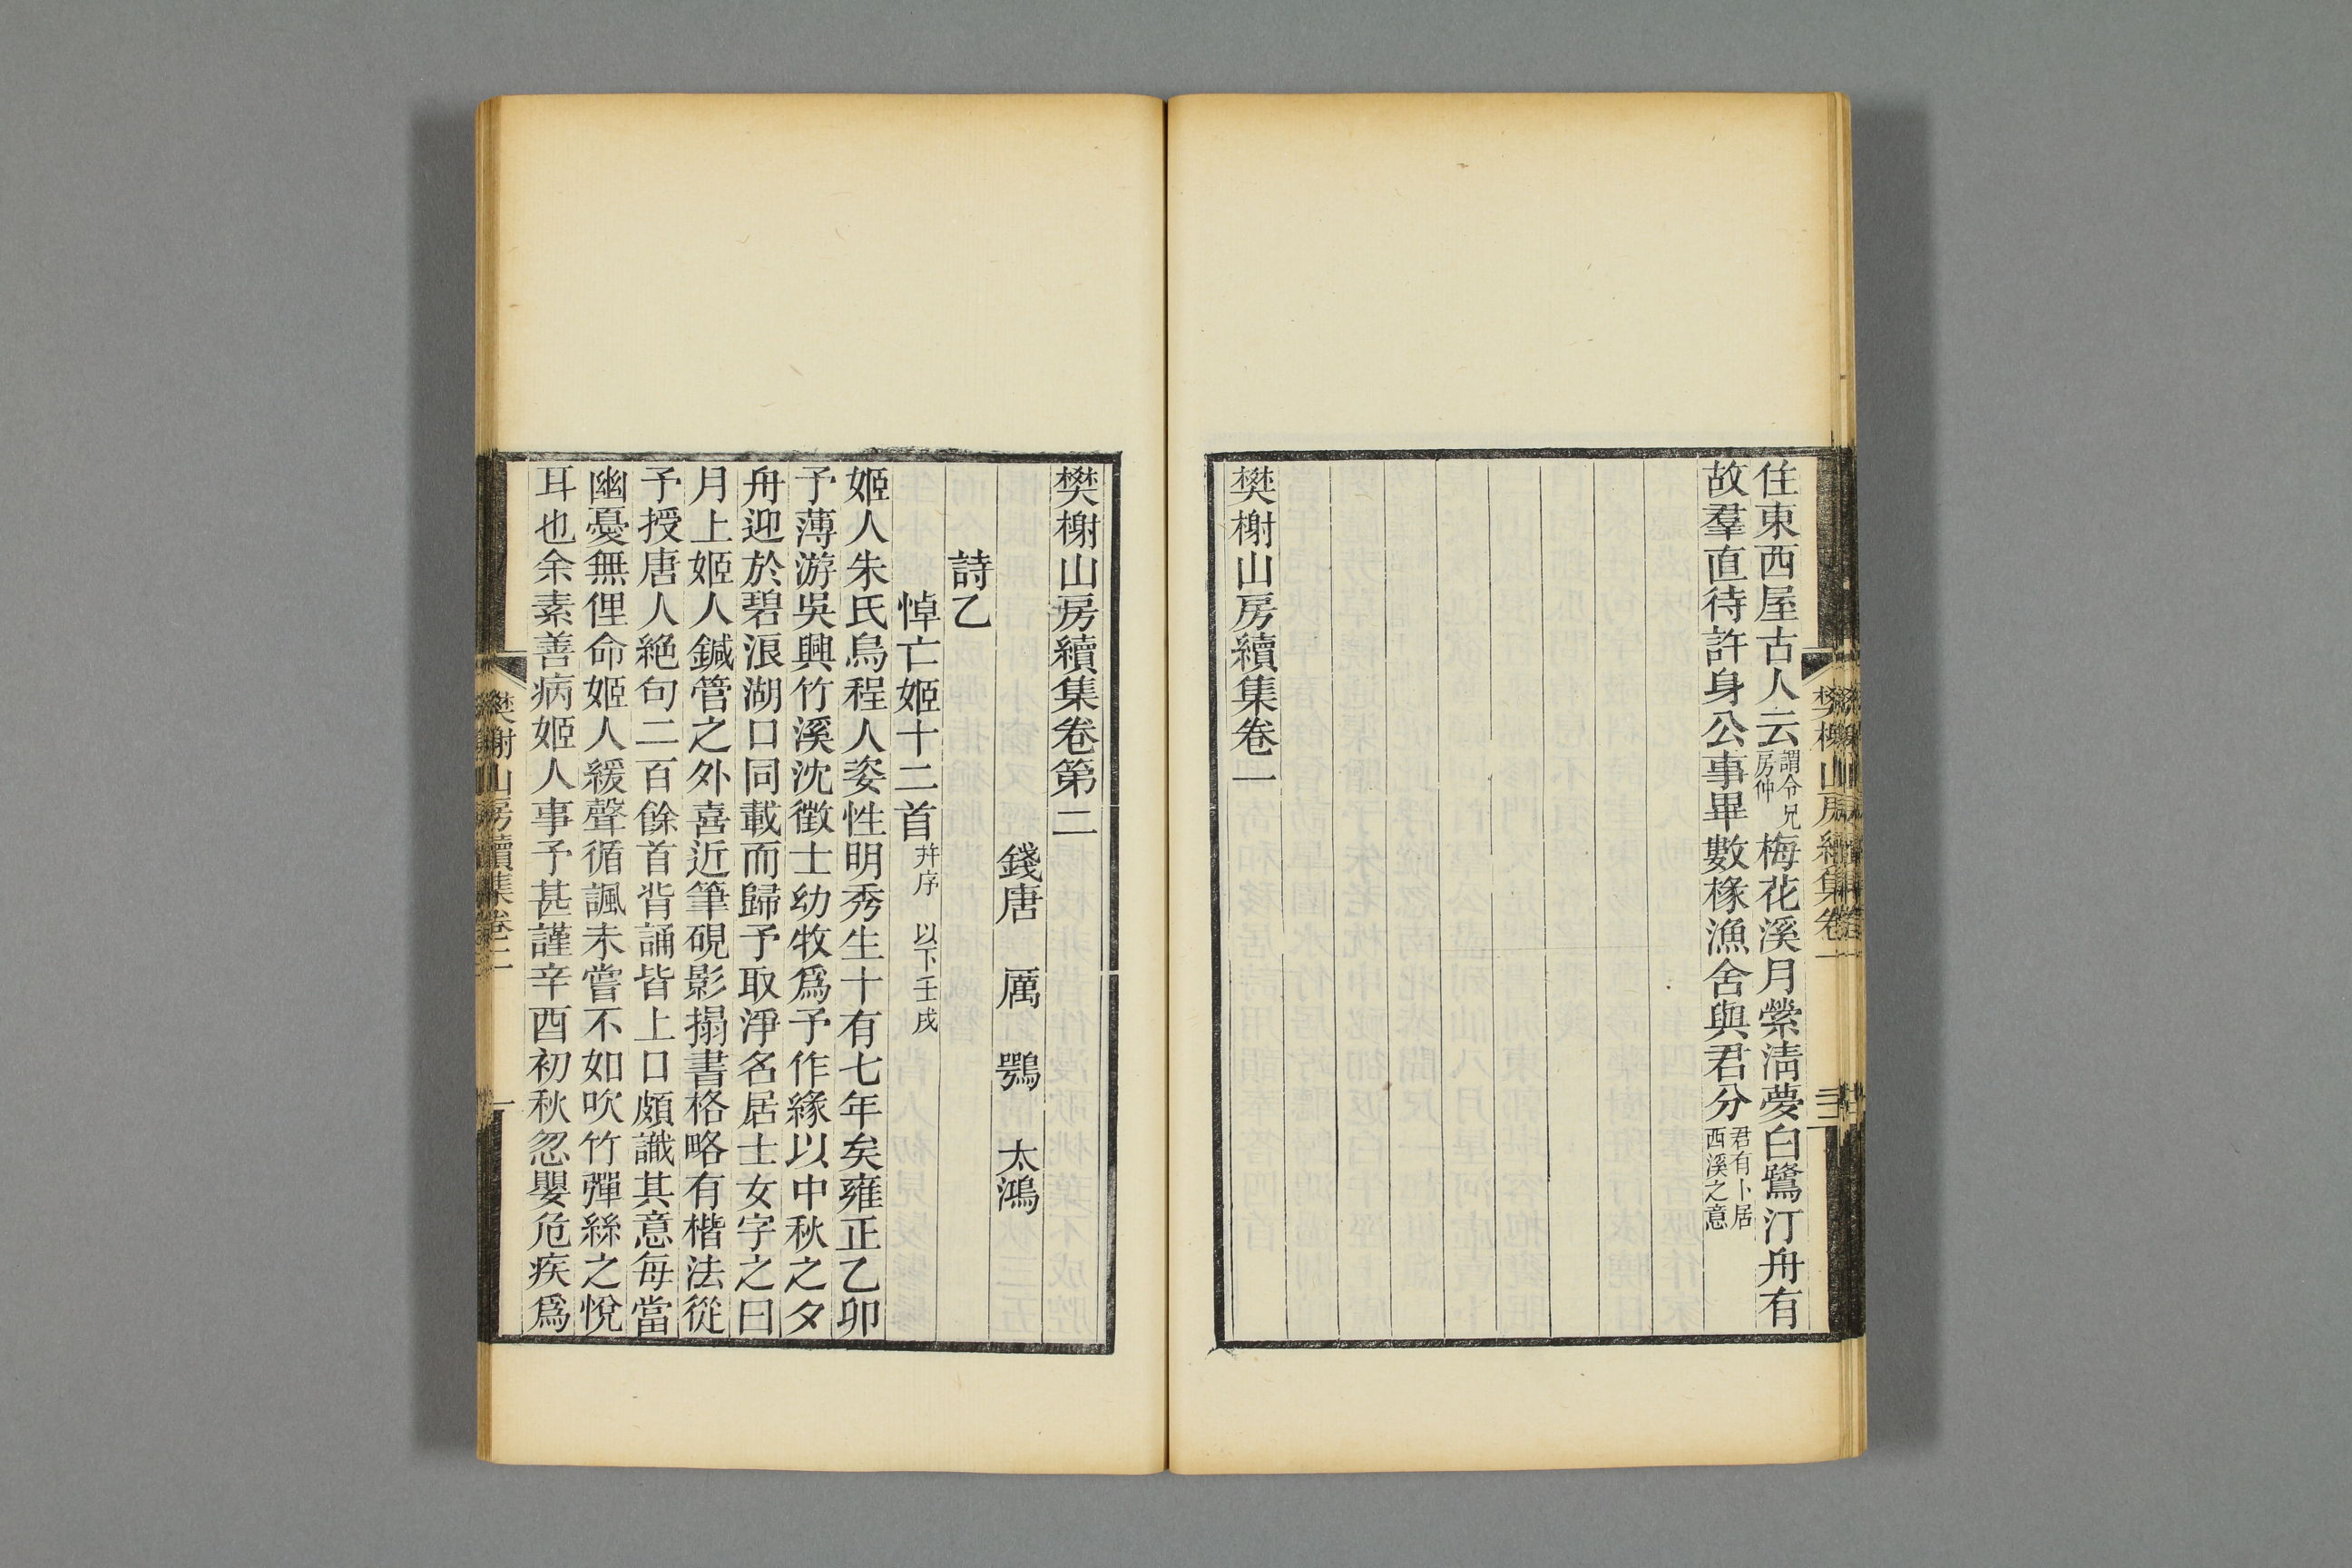 住東西屋古人云謂令兄房仲梅花溪月縈淸夢白鷺汀舟有
故羣直待許身公事畢數椽漁舍與君分君有卜居西溪之意
樊榭山房續集卷一
樊榭山房續集卷一
三
樊榭山房續集卷第二
錢唐 厲 鶚 太鴻
詩乙
悼亡姬十二首幷序 以下壬戌
姬人朱氏烏程人姿性明秀生十有七年矣雍正乙卯
予薄游吳興竹溪沈徵士幼牧爲予作緣以中秋之夕
舟迎於碧浪湖口同載而歸予取淨名居士女字之曰
月上姬人鍼管之外喜近筆硯影搨書格略有楷法從
予授唐人絕句二百餘首背誦皆上口頗識其意每當
幽憂無俚命姬人緩聲循諷未嘗不如吹竹彈絲之悅
耳也余素善病姬人事予甚謹辛酉初秋忽嬰危疾爲
樊榭山房續集卷二
一